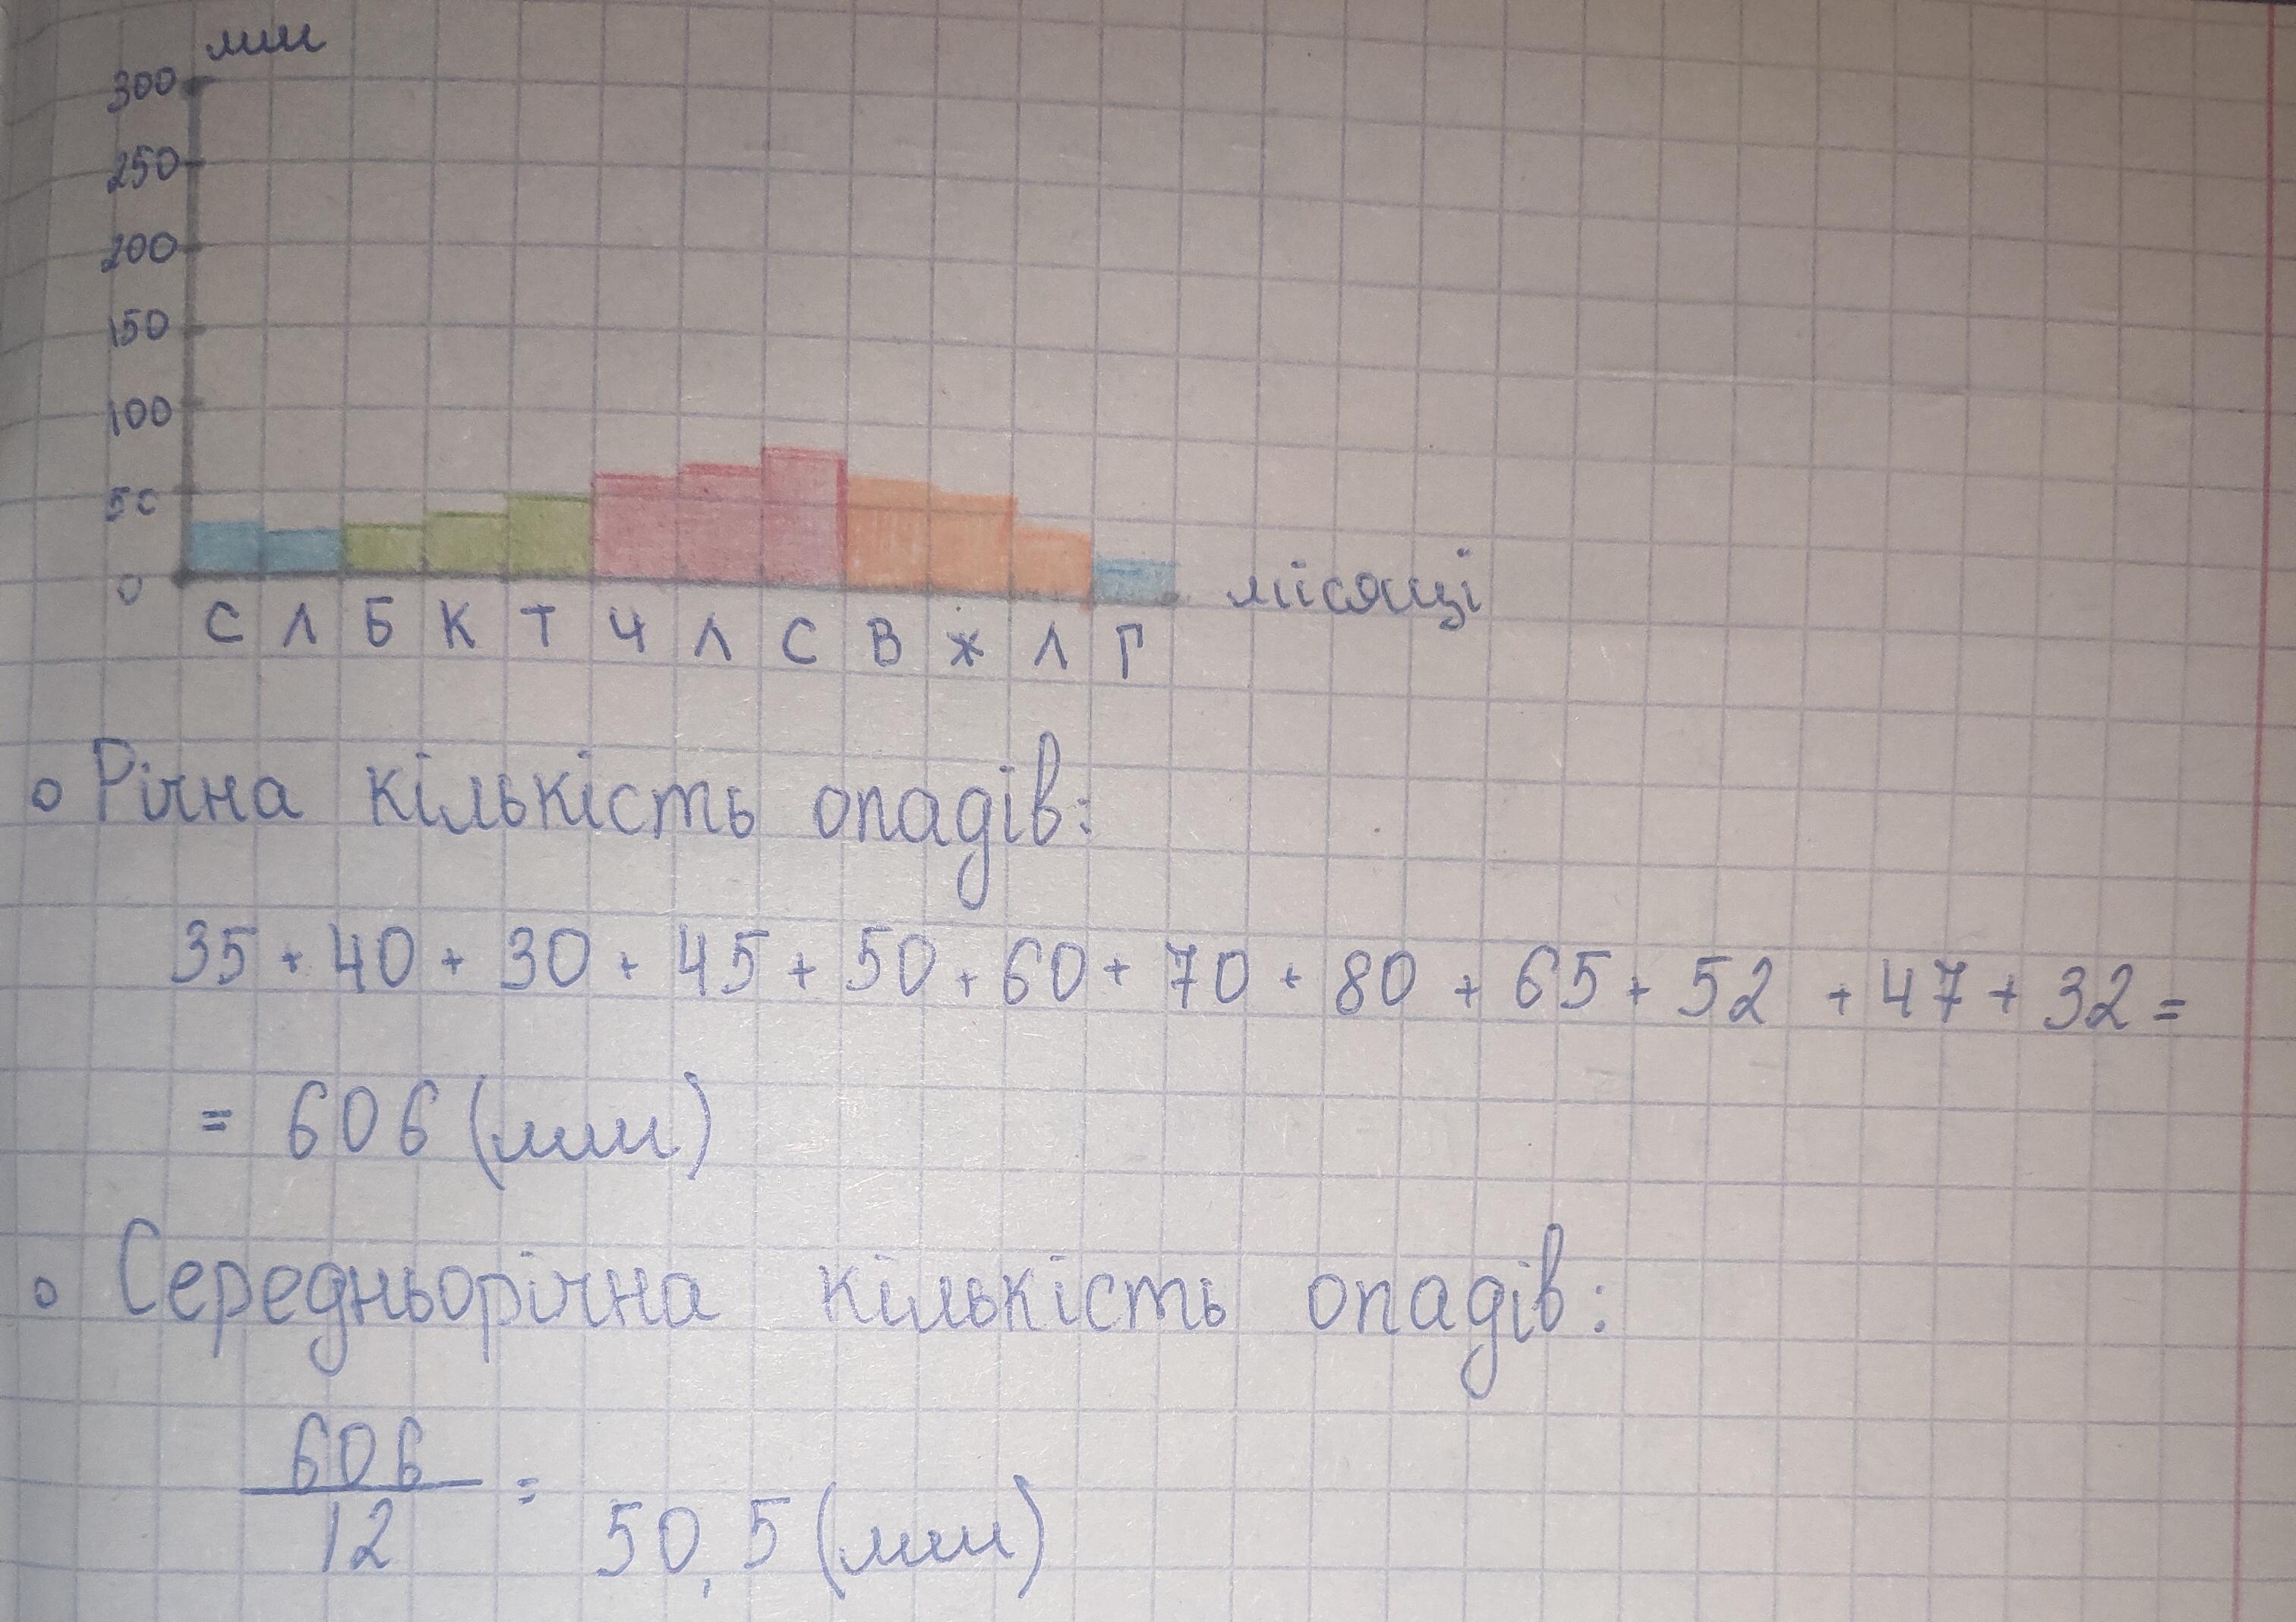 мм
300
250
200
150
100
50
0
С Л Б К Т Ч Л С В Ж Л Г місяці
Річна кількість опадів:
35 + 40 + 30 + 45 + 50 + 60 + 70 + 80 + 65 + 52 + 47 + 32 =
= 606 (мм)
Середньорічна кількість опадів:
606
12 = 50,5 (мм)